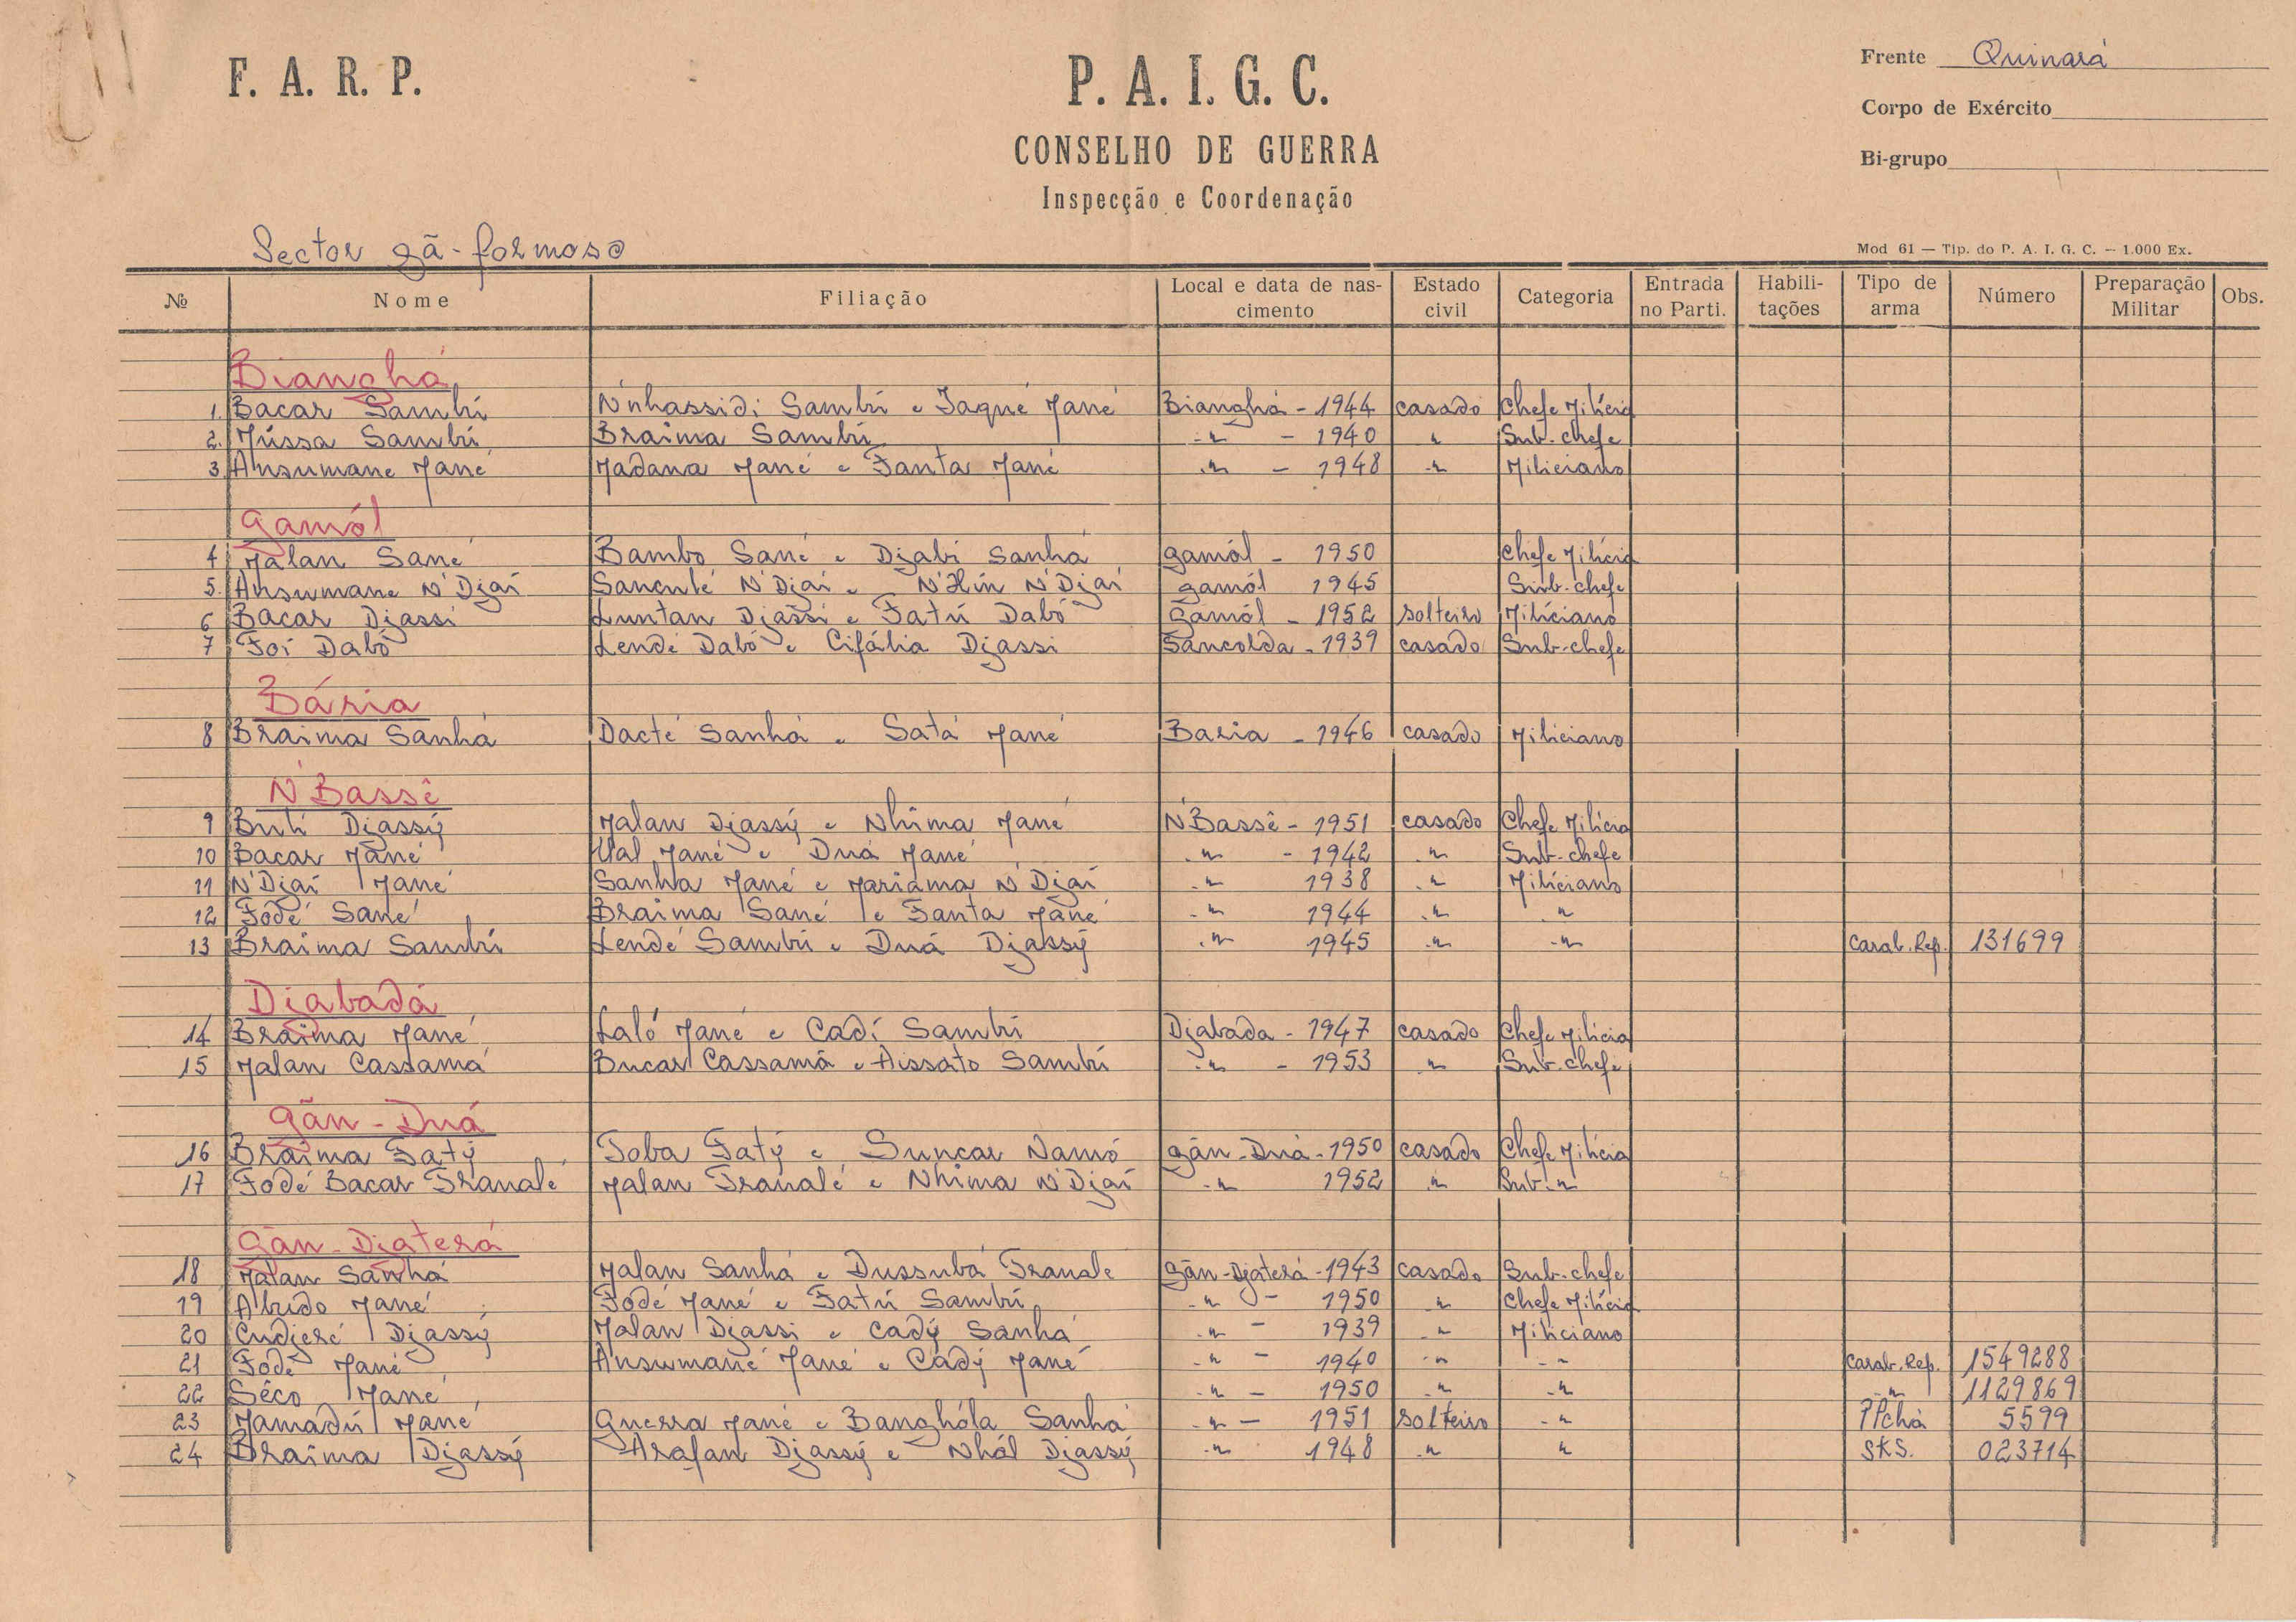 F. A. R. P.
P. A. I. G. C.
CONSELHO DE GUERRA
Inspecção e Coordenação
Frente Quinará
Corpo de Exército
Bi-grupo
Sector gã-formoso
Mod 61 — Tip. do P. A. I. G. C. — 1.000 Ex.
№ Nome Filiação Local e data de nascimento Estado civil Categoria Entrada no Parti. Habilitações Tipo de arma Número Preparação Militar Obs.
Bianghá
1. Bacar Sambú N'nhassidi Sambú e Faqué Mané Bianghá - 1944 casado Chefe Milícia
2. Mússa Sambú Braima Sambú -"- - 1940 " Sub-chefe
3. Ansumane Mané Madana Mané e Fanta Mané -"- - 1948 -"- Miliciano
Gamól
4 Malan Sané Bambo Sané e Djabi Sanhá Gamól - 1950 Chefe Milícia
5. Ansumane N'Djai Sanculé N'Djai e N'Djai gamól 1945 Sub-chefe
6 Bacar Djassi Luntan Djassi e Fatú Dabó Gamól - 1952 solteiro Miliciano
7 Foi Dabó Lendé Dabó e Cifália Djassi Sancolda - 1939 casado Sub-chefe
Bária
8 Braima Sanhá Dacté Sanhá e Satá Mané Baria - 1946 casado Miliciano
N'Bassê
9 Buli Djassý Malan Djassý e Nhima Mané N'Bassê - 1951 casado Chefe Milícia
10 Bacar Mané Ual Mané e Duá Mané -"- - 1942 -"- Sub-chefe
11 N'Djai Mané Sanha Mané e Mariama N'Djai -"- 1938 -"- Miliciano
12 Fodé Sané Braima Sané e Fanta Mané -"- 1944 -"- "
13 Braima Sambú Lendé Sambú e Duá Djassý -"- 1945 -"- -"- Carab. Rep. 131699
Djabadá
14 Braima Mané Laló Mané e Cadí Sambú Djabada - 1947 casado Chefe Milícia
15 Malan Cassamá Bucar Cassamá e Aissato Sambú -"- - 1953 -"- Sub-chefe
gãn-Duá
16 Braima Faty Foba Faty e Suncar Namó gãn-Duá - 1950 casado Chefe Milícia
17 Fodé Bacar Tranale Malan Tranalé e Nhima N'Djai -"- 1952 -"- Sub-"
Gãn-Djaterá
18 Malan Sanhá Malan Sanhá e Dussubá Tranale Gãn-Djaterá - 1943 casado Sub-chefe
19 Abudo Mané Fodé Mané e Fatú Sambú -"- - 1950 -"- Chefe Milícia
20 Cudjeré Djassý Malan Djassi e Cadý Sanhá -"- - 1939 -"- Miliciano
21 Fodé Mané Ansumané Mané e Cadý Mané -"- - 1940 -"- -"- Carab. Rep. 1549288
22 Sêco Mané -"- - 1950 -"- -"- -"- 1129869
23 Mamadú Mané Guerra Mané e Banghóla Sanhá -"- - 1951 solteiro -"- PPchá 5599
24 Braima Djassý Arafan Djassý e Nhál Djassý -"- 1948 -"- " SKS. 023714